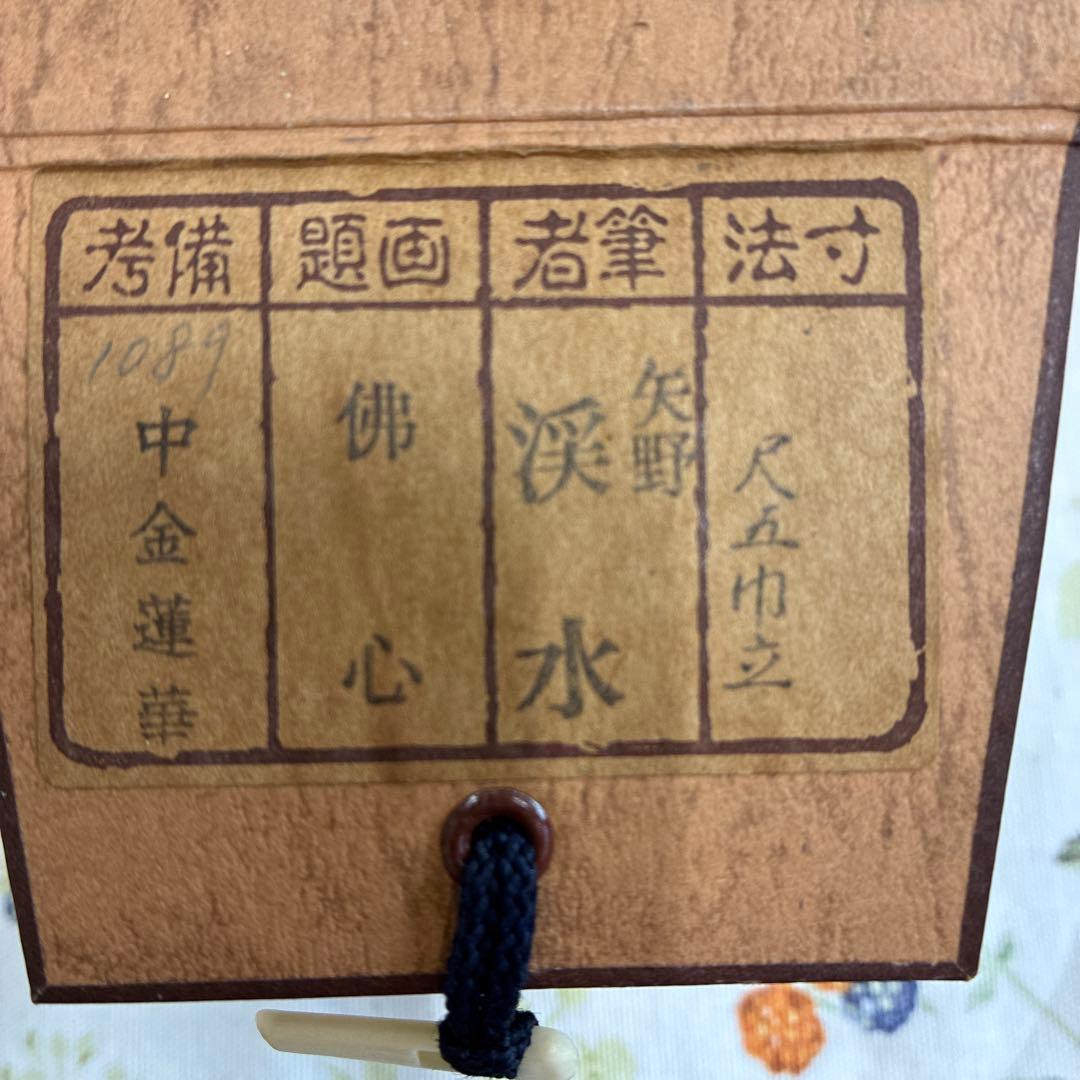 寸法
尺五巾立
筆者
矢野
渓水
画題
佛心
備考
1089
中金蓮華